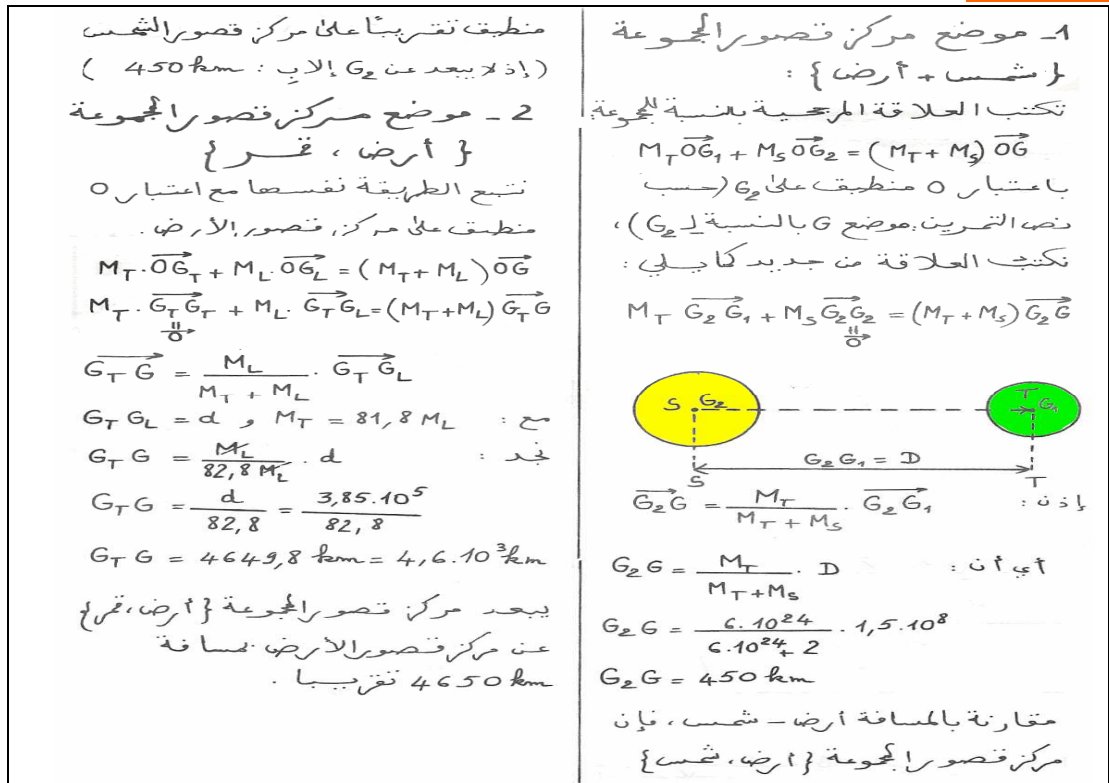 1ـ موضع مركز قصور المجموعة
{شمس + أرض} :
تكتب العلاقة المرجحية بالنسبة للمجموعة:
M_T OG₁ + M_S OG₂ = (M_T + M_S) OG
باعتبار O منطبق على G₂ (حسب
نص التمرين: موضع G بالنسبة لـ G₂)،
نكتب العلاقة من جديد كما يلي :
M_T G₂G₁ + M_S G₂G₂ = (M_T + M_S) G₂G
"
0
S G₂ T G₁
G₂G₁ = D
S T
إذن : G₂G = M_T / (M_T + M_S) . G₂G₁
أي أن : G₂G = M_T / (M_T + M_S) . D
G₂G = 6.10²⁴ / (6.10²⁴ + 2) . 1,5.10⁸
G₂G = 450 km
مقارنة بالمسافة أرض - شمس، فإن
مركز قصور المجموعة {أرض، شمس}
منطبق تقريبًا على مركز قصور الشمس
(إذ لا يبعد عن G₂ إلا بـ : 450 km)
2 ـ موضع مركز قصور المجموعة
{أرض ، قمر}
نتبع الطريقة نفسها مع اعتبار O
منطبق على مركز قصور الأرض.
M_T . OG_T + M_L . OG_L = (M_T + M_L) OG
M_T . G_TG_T + M_L . G_TG_L = (M_T + M_L) G_TG
"
0
G_TG = M_L / (M_T + M_L) . G_TG_L
مع : M_T = 81,8 M_L و G_TG_L = d
نجد : G_TG = M_L / 82,8 M_L . d
G_TG = d / 82,8 = 3,85.10⁵ / 82,8
G_TG = 4649,8 km = 4,6.10³ km
يبعد مركز قصور المجموعة {أرض، قمر}
عن مركز قصور الأرض بمسافة
4650 km تقريبا .